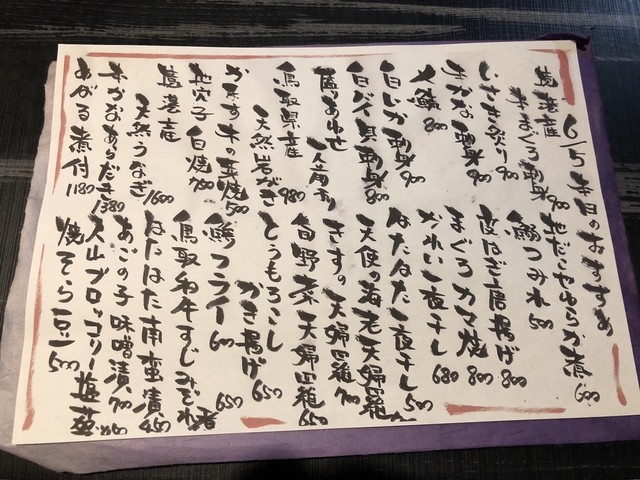 6/5 本日のおすすめ
境港産
本まぐろ刺身 980
いさき炙り 900
すかな刺身 900
〆鯖 800
白いか刺身 900
白バイ貝刺身 800
盛り合わせ 一人前
鳥取県産
天然岩がき 980
かます本の葉焼 500
地穴子白焼 700
境港産
天然うなぎ 1600
すかなあらだき 1380
あがる煮付 1180
地だこやわらか煮 600
鯛つみれ 500
夜はぎ唐揚げ 800
まぐろカマ焼 800
かれい一夜干し 680
はたはた一夜干し 500
天使の海老天婦羅
きすの天婦羅 700
旬野菜天婦羅 650
とうもろこし
かき揚げ 650
鯵フライ 600
鳥取和牛すじみぞれ煮 650
はたはた南蛮漬 450
あごの子味噌漬 700
大山ブロッコリー塩茹
焼そら豆 500